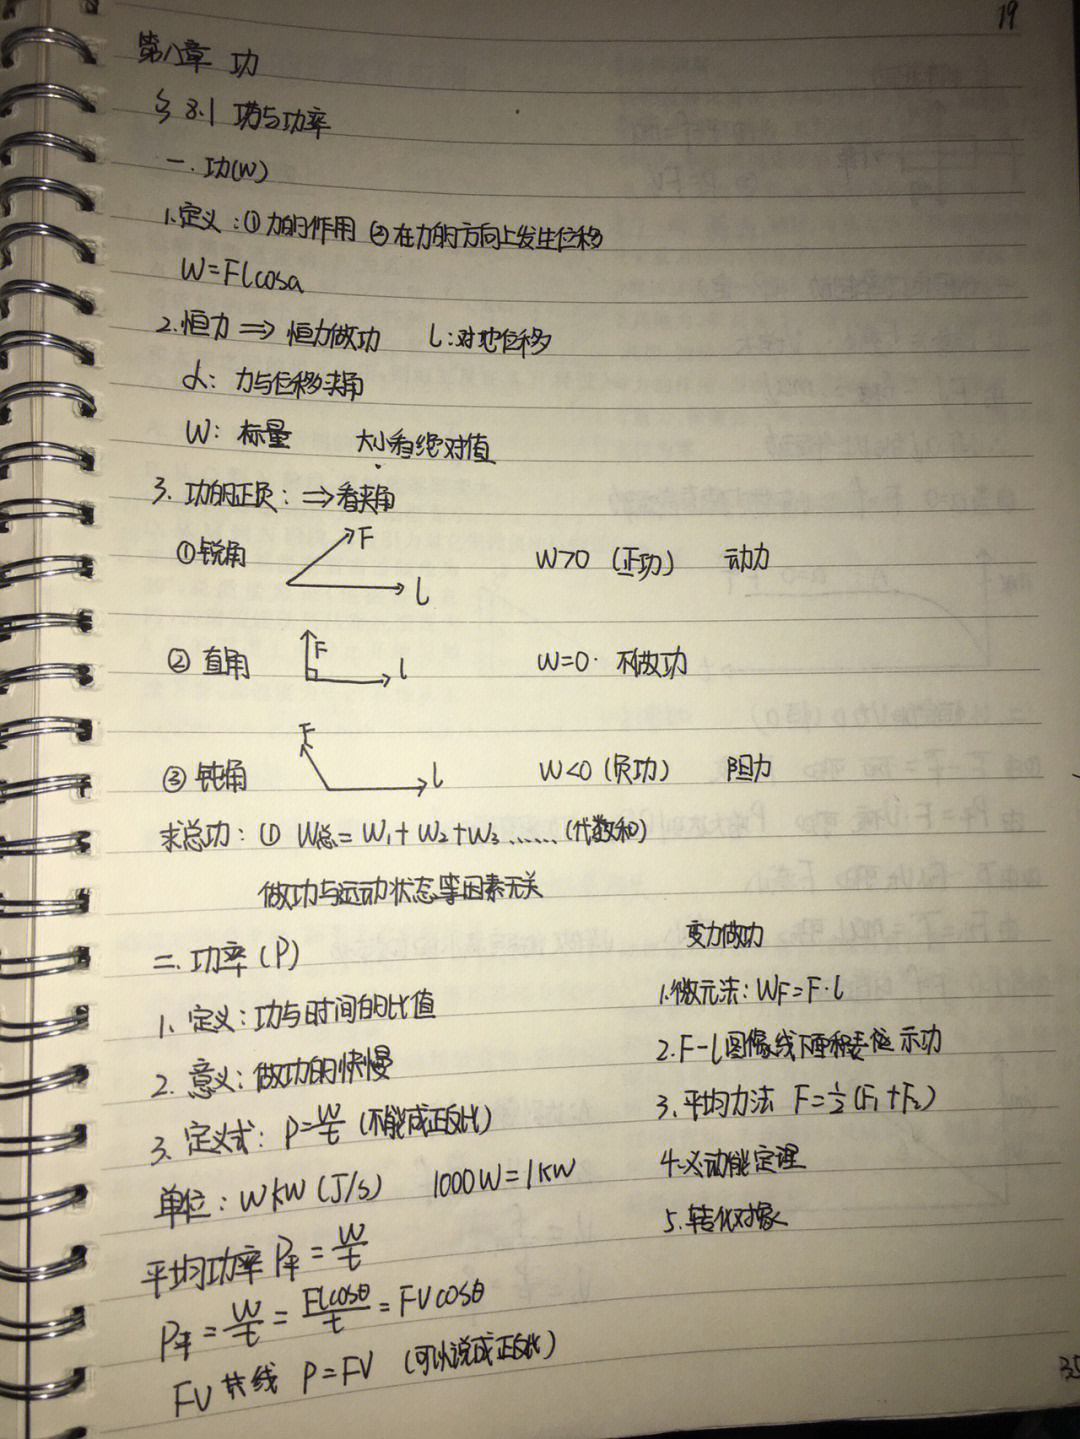 19
第八章 功
§ 8.1 功与功率
一.功(W)
1.定义:①力的作用 ②在力的方向上发生位移
W=Flcosα
2.恒力⇒恒力做功 l:对地位移
α: 力与位移夹角
W: 标量 大小看绝对值
3. 功的正负: ⇒看夹角
①锐角 F l W>0 (正功) 动力
②直角 F l W=0. 不做功
③钝角 F l W<0 (负功) 阻力
求总功: ① W总=W₁+W₂+W₃…… (代数和)
做功与运动状态等因素无关
二.功率(P)
1. 定义:功与时间的比值
2. 意义:做功的快慢
3. 定义式: P=W/t (不能成正反比)
单位: W kW (J/s) 1000W=1kW
平均功率 P平=W/t
P平=W/t=Flcosθ/t=FVcosθ
FV共线 P=FV (可以说成正反比)
变力做功
1.微元法: WF=F·l
2.F-l图像线下面积表示功
3.平均力法 F=½(F₁+F₂)
4.动能定理
5.转化对象
35